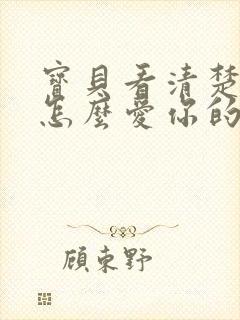 寶貝看清楚
怎麼愛你的
顧東野